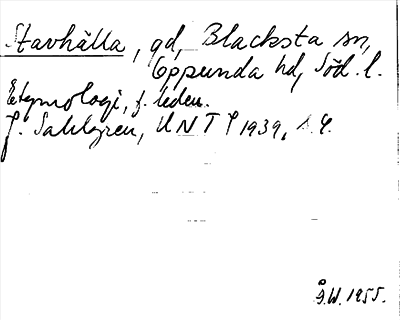 Stavhälla, gd, Blacksta sn,
Oppunda hd, Söd. l.
Etymologi, f. leden.
J. Sahlgren, UNT 1939, s. 4.
Å.W. 1955.